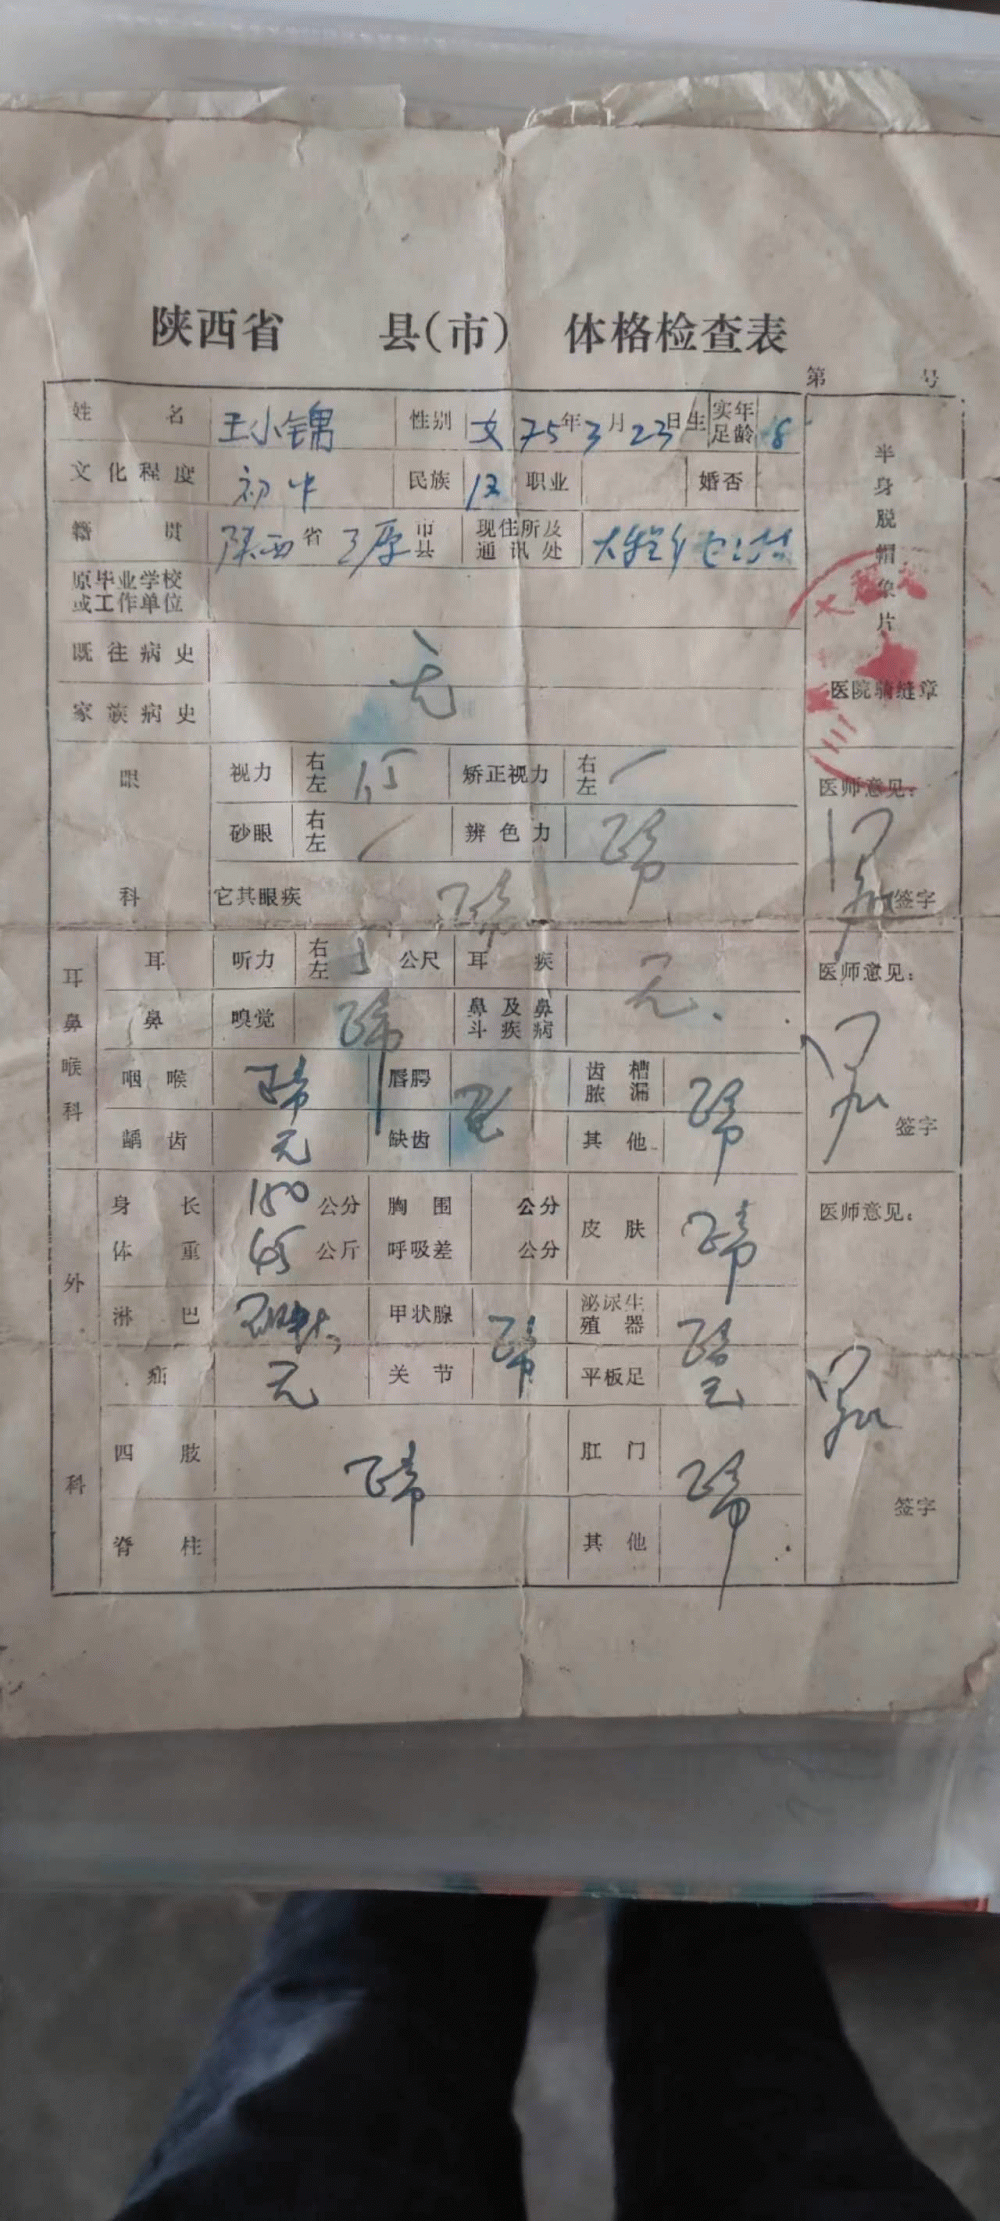 陕西省 县(市) 体格检查表
第 号
姓名 王小锦 性别 女 75年3月23日生 实足年龄 18
文化程度 初中 民族 汉 职业 婚否
籍贯 陕西省 三原 市县 现住所及通讯处 大程乡
原毕业学校或工作单位
既往病史 无
家族病史
半身脱帽象片
医院骑缝章
眼科 视力 右左 1.5 矫正视力 右左 /
砂眼 右左 / 辨色力 正常
它其眼疾 正常
医师意见: 签字
耳鼻喉科 耳 听力 右左 5 公尺 耳疾 无
鼻 嗅觉 正常 鼻及鼻斗疾病
咽喉 正常 唇腭 齿槽脓漏 正常
龋齿 无 缺齿 无 其他
医师意见: 签字
外科 身长 150 公分 胸围 公分 皮肤 正常
体重 45 公斤 呼吸差 公分
淋巴 甲状腺 正常 泌尿生殖器 正常
疝 无 关节 平板足 无
四肢 正常 肛门 正常
脊柱 其他
医师意见: 签字